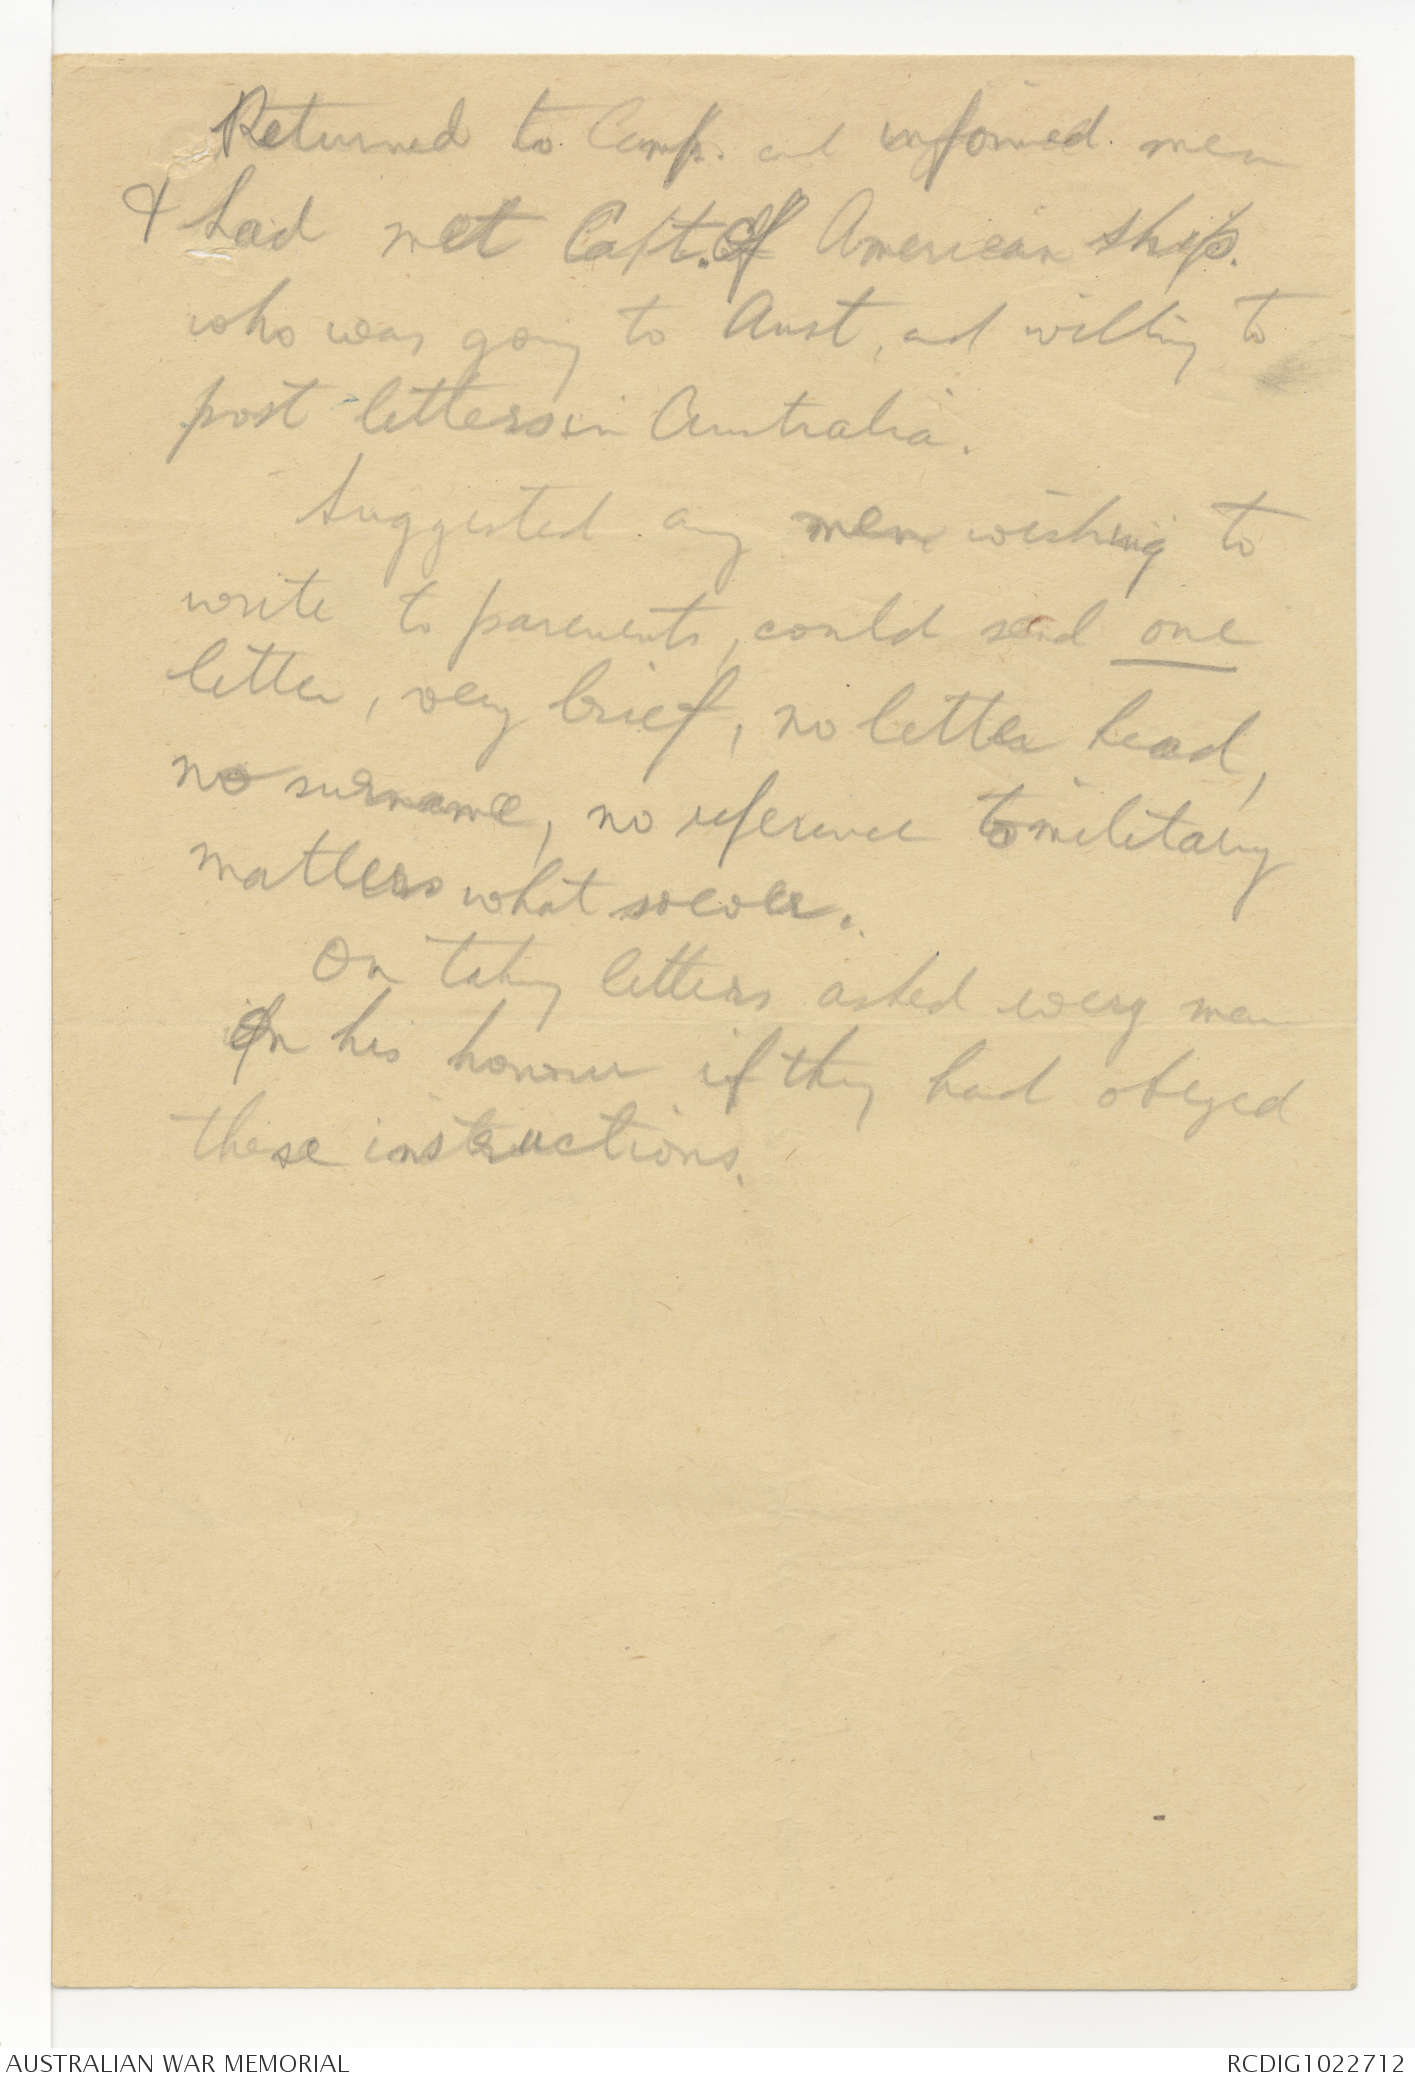 Returned to Camp. and informed. men
I had met Capt. of American ship.
who was going to Aust, and willing to
post letters in Australia.
Suggested any men wishing to
write to parenents, could send one
letter, very brief, no letter head,
no surname, no reference to military
matters what soever.
On taking letters asked every man
on his honour if they had obeyed
these instructions.
AUSTRALIAN WAR MEMORIAL
RCDIG1022712